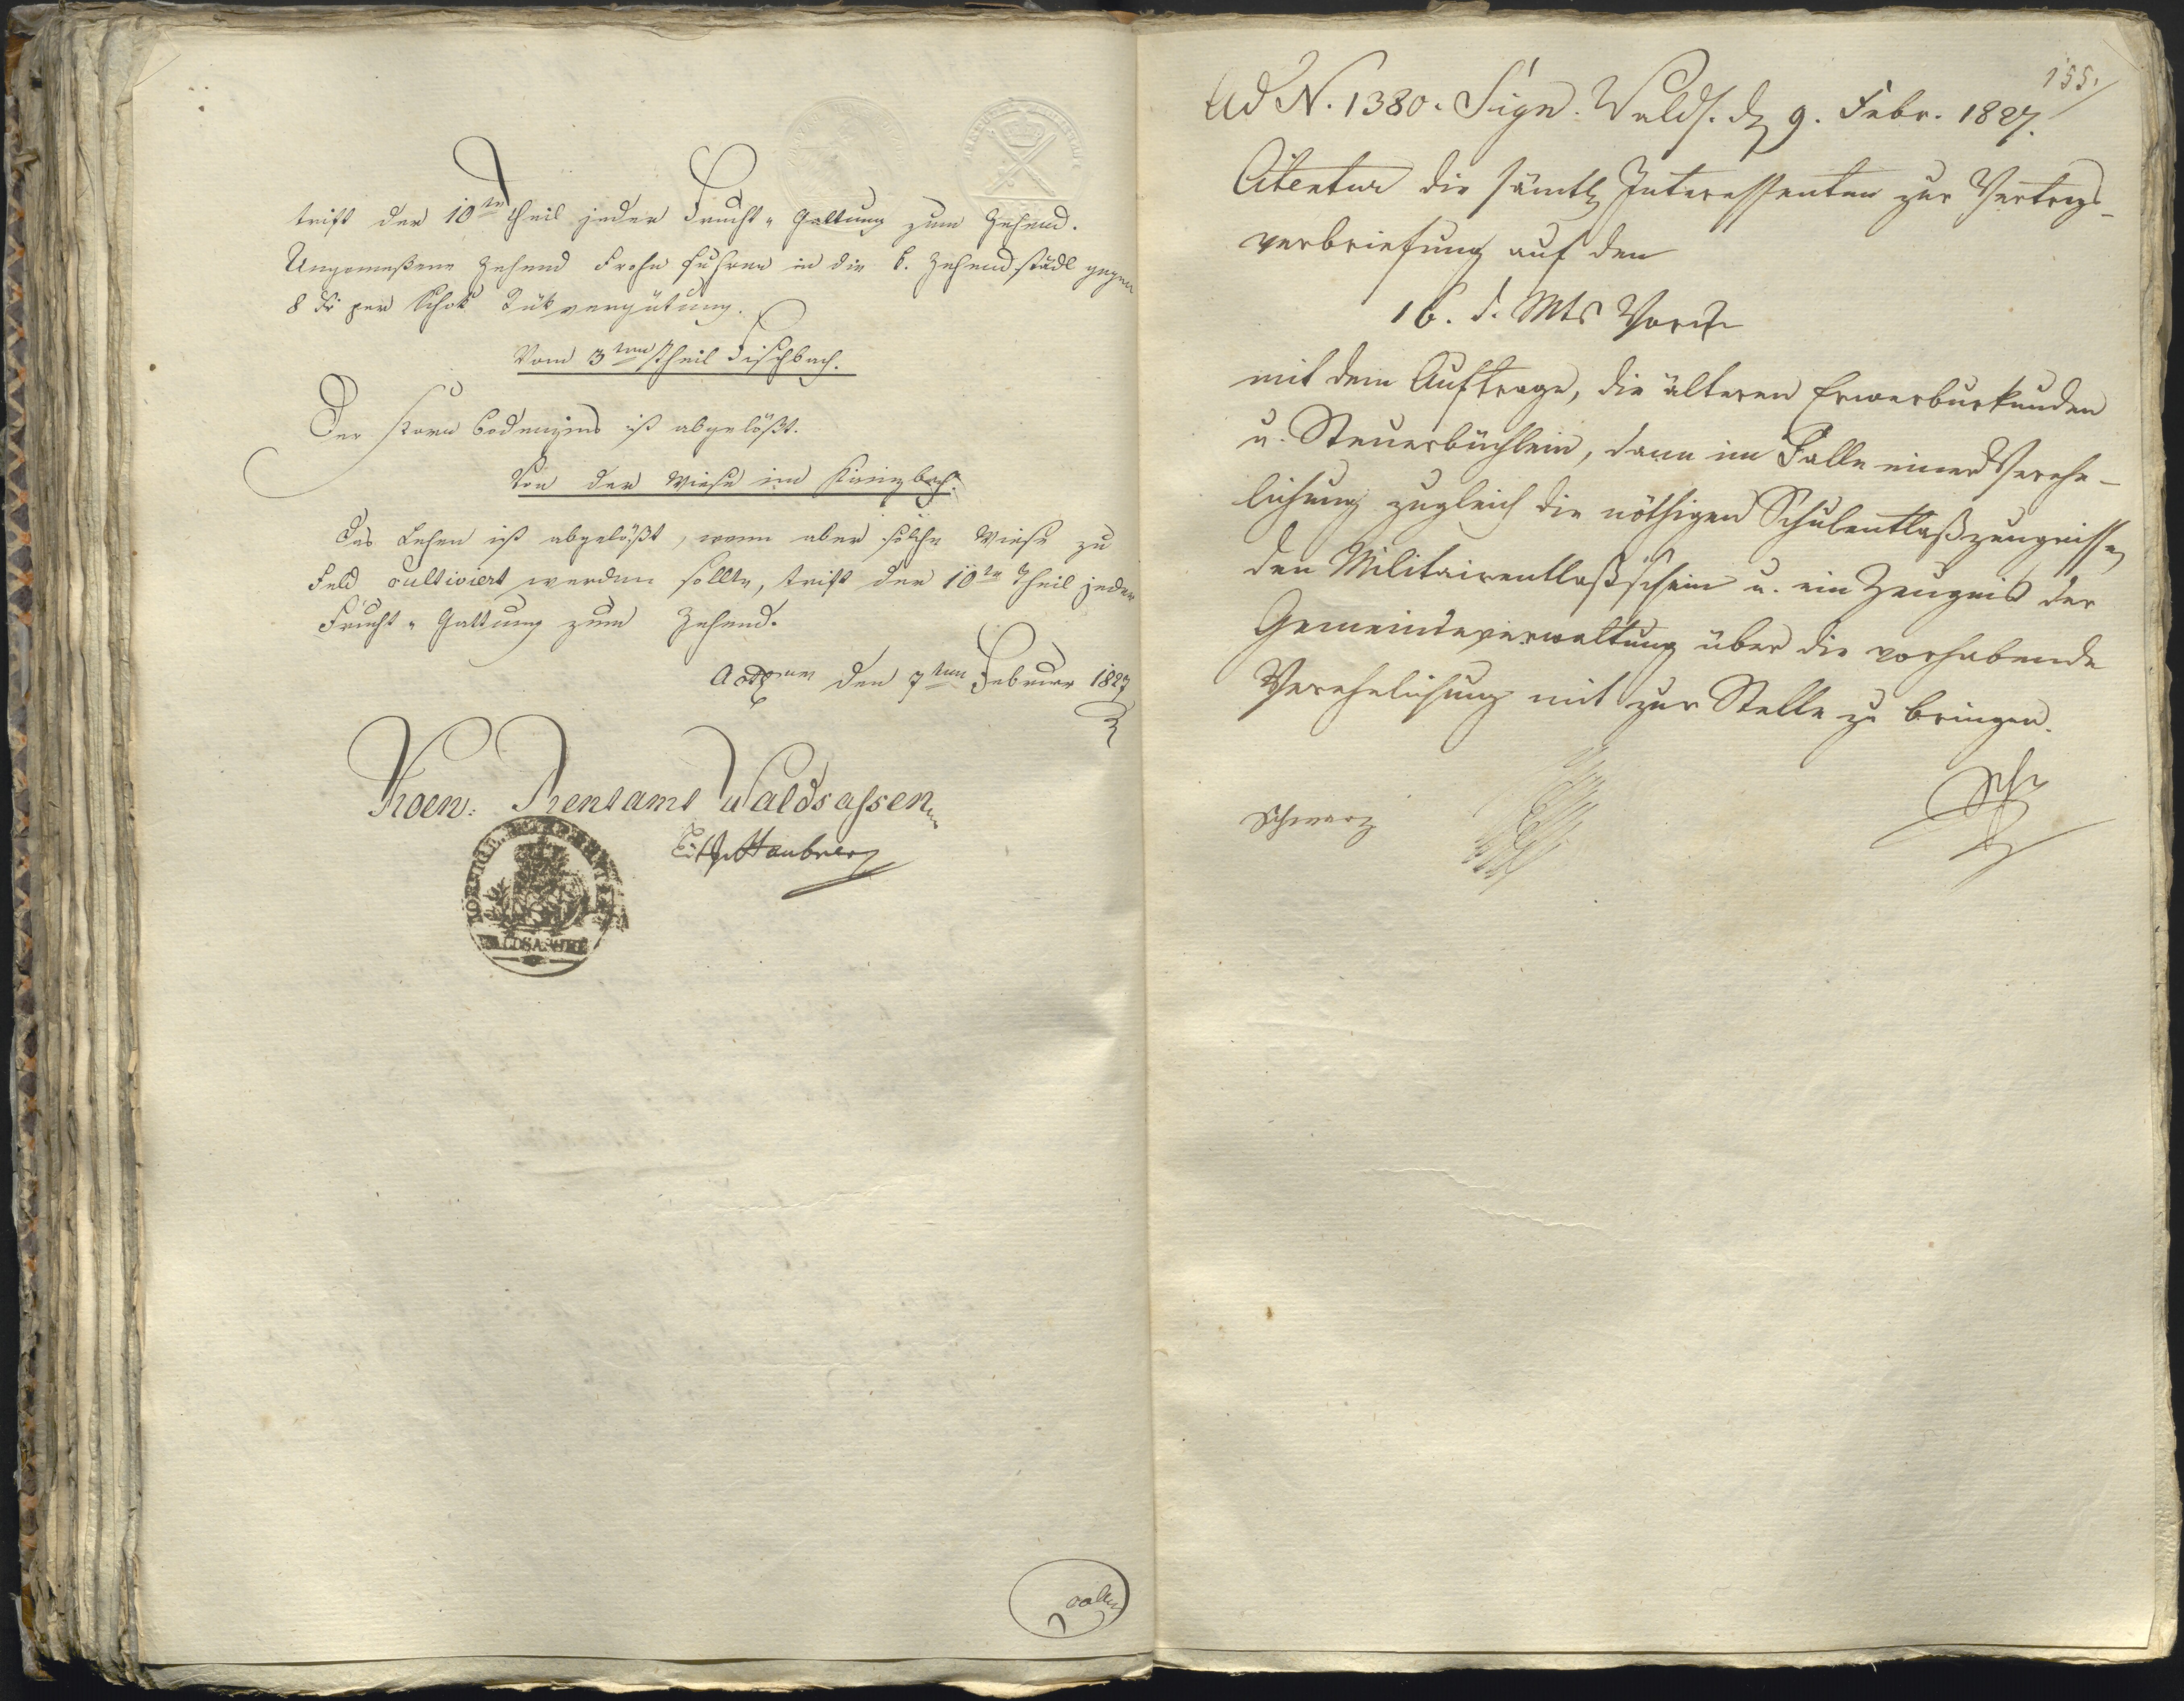 trift der 10te Theil jeder Frucht-Gattung zum Zehend.
Ungemeßene Zehend Frohn fuhren in die k. Zehendstädl gegen
8 Xr per Schok Rükvergütung.
Vom 3ten Theil Fischbach.
Der Korn Bodenzins ist abgelößt.
Von der Wiese im
Das Lehen ist abgelößt, wenn aber solche Wiese zu
Feld cultiviert werden sollte, trift der 10te Theil jeder
Frucht-Gattung zum Zehend.
den 7ten Februar 1827
Koen: Rentamt Waldsassen
WALDSASSEN
155.
Ad N. 1380. Sign. Walds. d. 9. Febr. 1827.
Citentur die sämtl. Interessenten zur Vertrags-
verbriefung auf den
16. d. Mts
mit dem Auftrage, die älteren Erwerburkunden
u. Steuerbüchlein, dann im Falle einer Verehe-
lichung zugleich die nöthigen Schulentlaßzeugnisse,
den Militairentlaßschein u. ein Zeugnis der
Gemeindeverwaltung über die vorhabende
Verehelichung mit zur Stelle zu bringen.
Schwarz